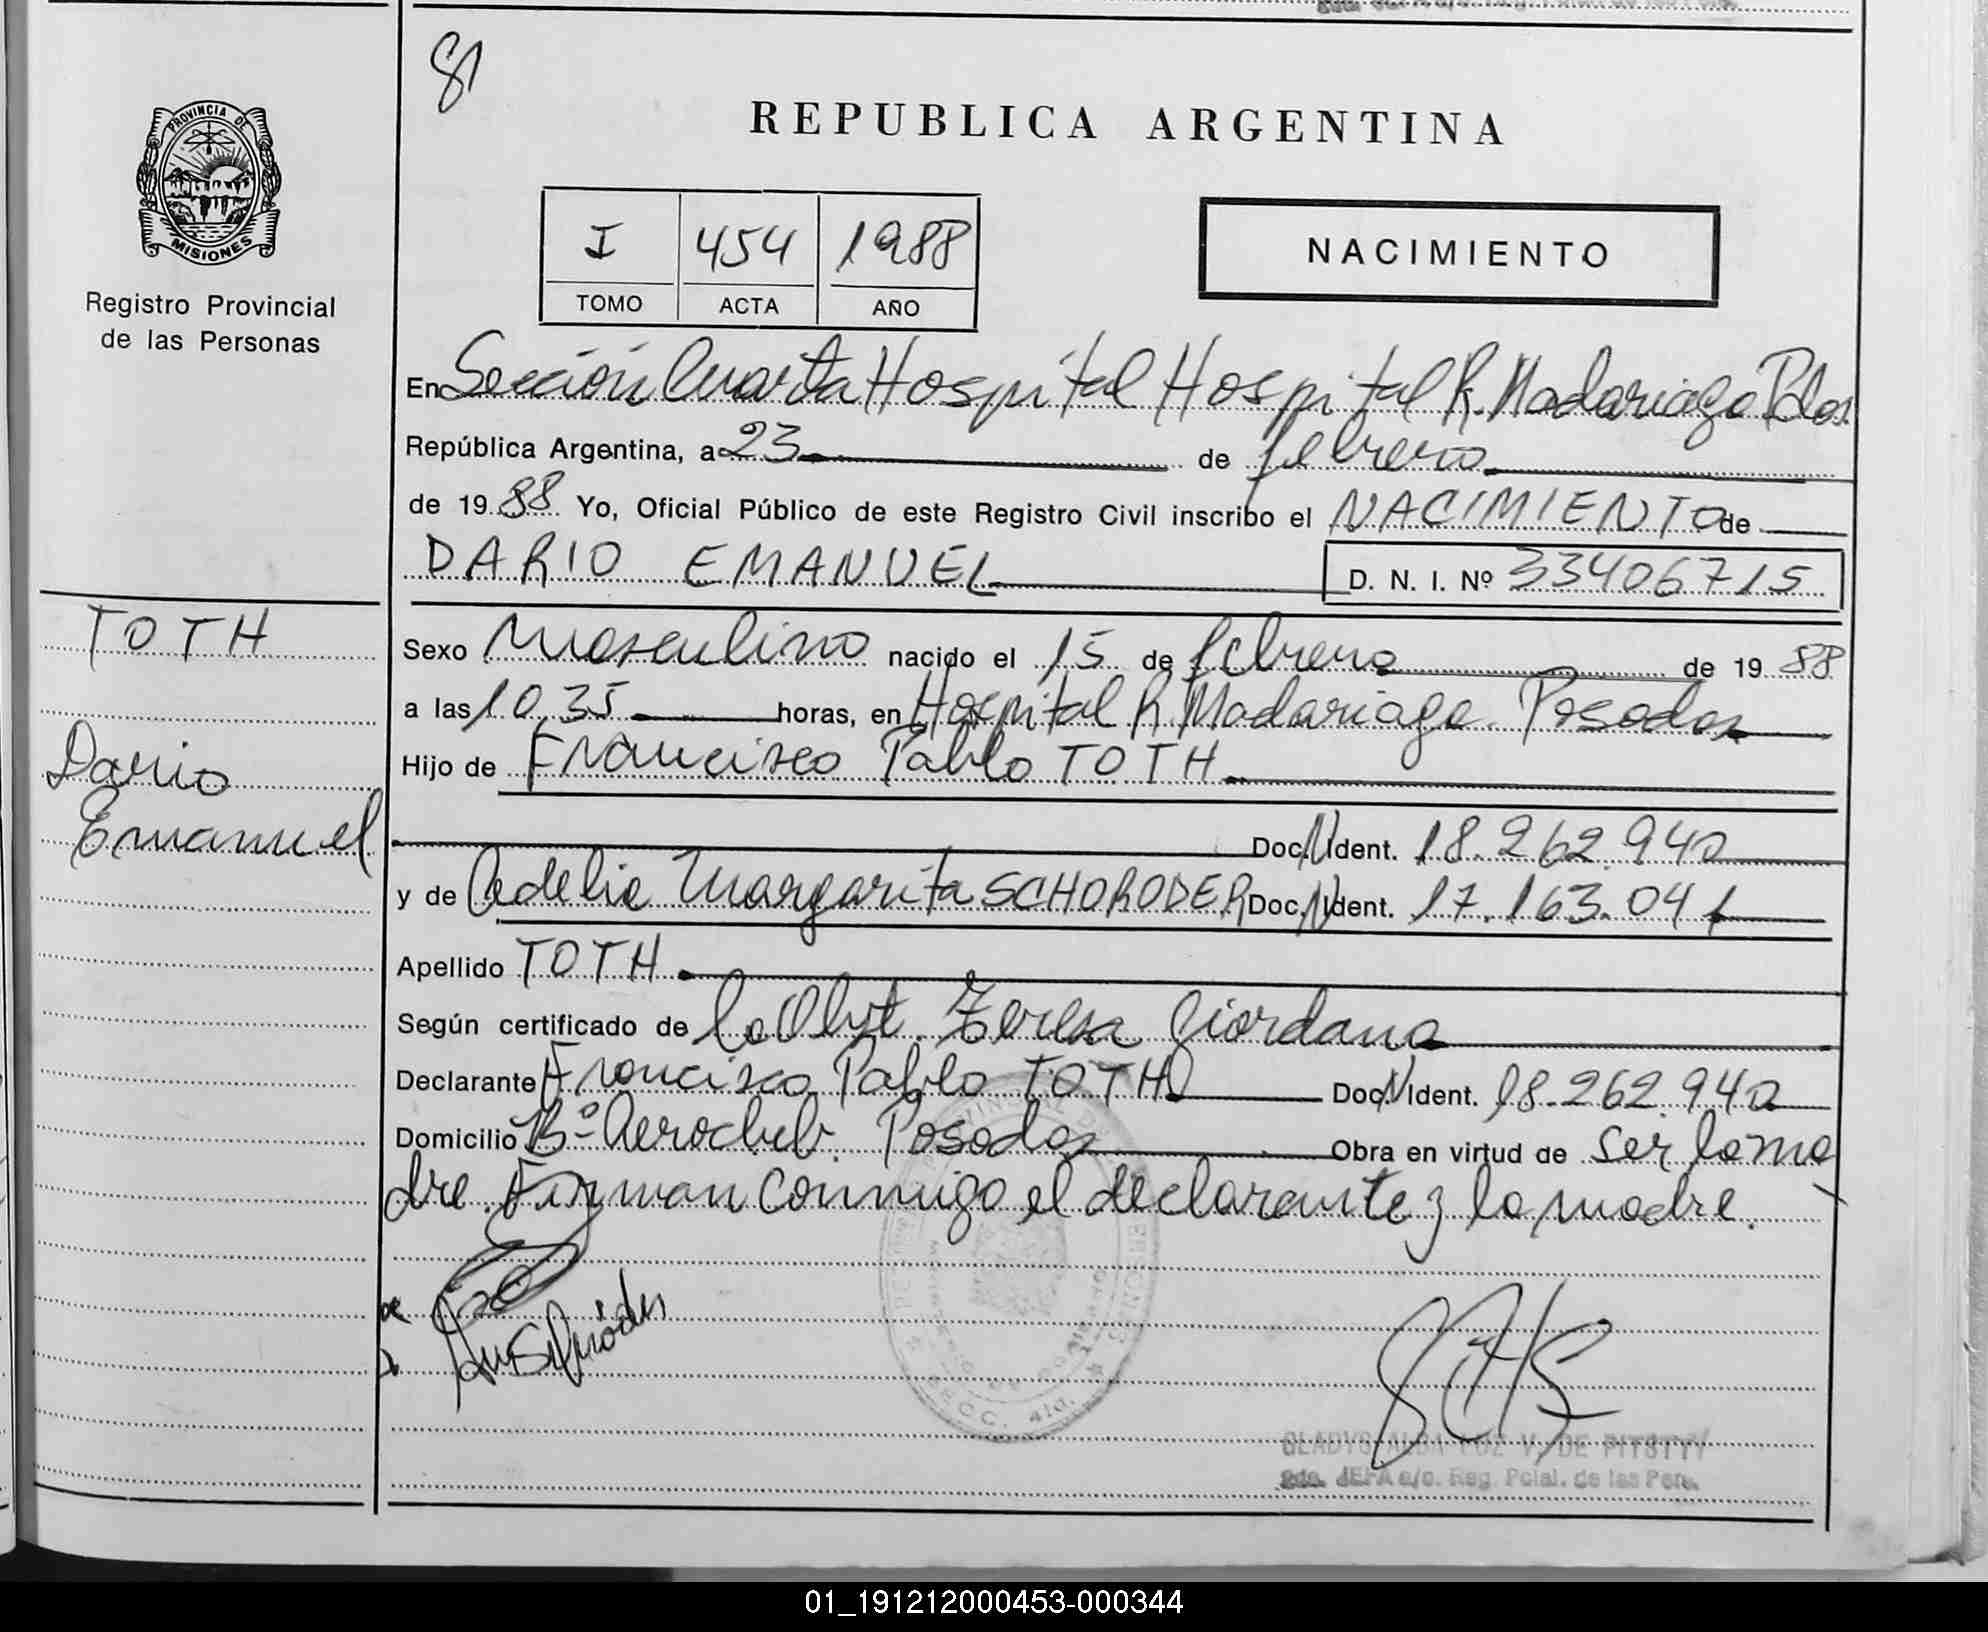 81
REPUBLICA ARGENTINA
PROVINCIA DE
MISIONES
Registro Provincial
de las Personas
I 454 1988
TOMO ACTA AÑO
NACIMIENTO
En Sección Cuarta Hospital Hospital R. Madariaga Pdas.
República Argentina, a 23 de febrero
de 1988 Yo, Oficial Público de este Registro Civil inscribo el NACIMIENTO de
DARIO EMANUEL D. N. I. Nº 33406715
TOTH
Dario
Emanuel
Sexo Masculino nacido el 15 de febrero de 1988
a las 10,35 horas, en Hospital R. Madariaga. Posadas
Hijo de Francisco Pablo TOTH
Doc. N Ident. 18.262.940
y de Adelia Margarita SCHORODER Doc. N Ident. 17.163.041
Apellido TOTH
Según certificado de la Obst. Teresa Giordano
Declarante Francisco Pablo TOTH Doc. N Ident. 18.262.940
Domicilio Bº Aeroclub. Posadas Obra en virtud de ser la ma
dre. Firman conmigo el declarante y la madre.
GLADYS ALBA V. DE
JEFA a/c. Reg. Pcial. de las Pers.
01_191212000453-000344